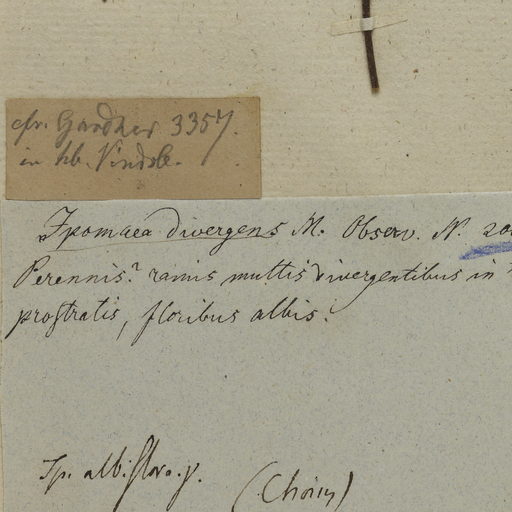 cfr. Gardner 3357.
in hb. Vindob.
Ipomaea divergens M. Observ. N. 20
Perennis? ramis multis divergentibus in
prostratis, floribus albis.
Ip. albiflora.
(Choisy)